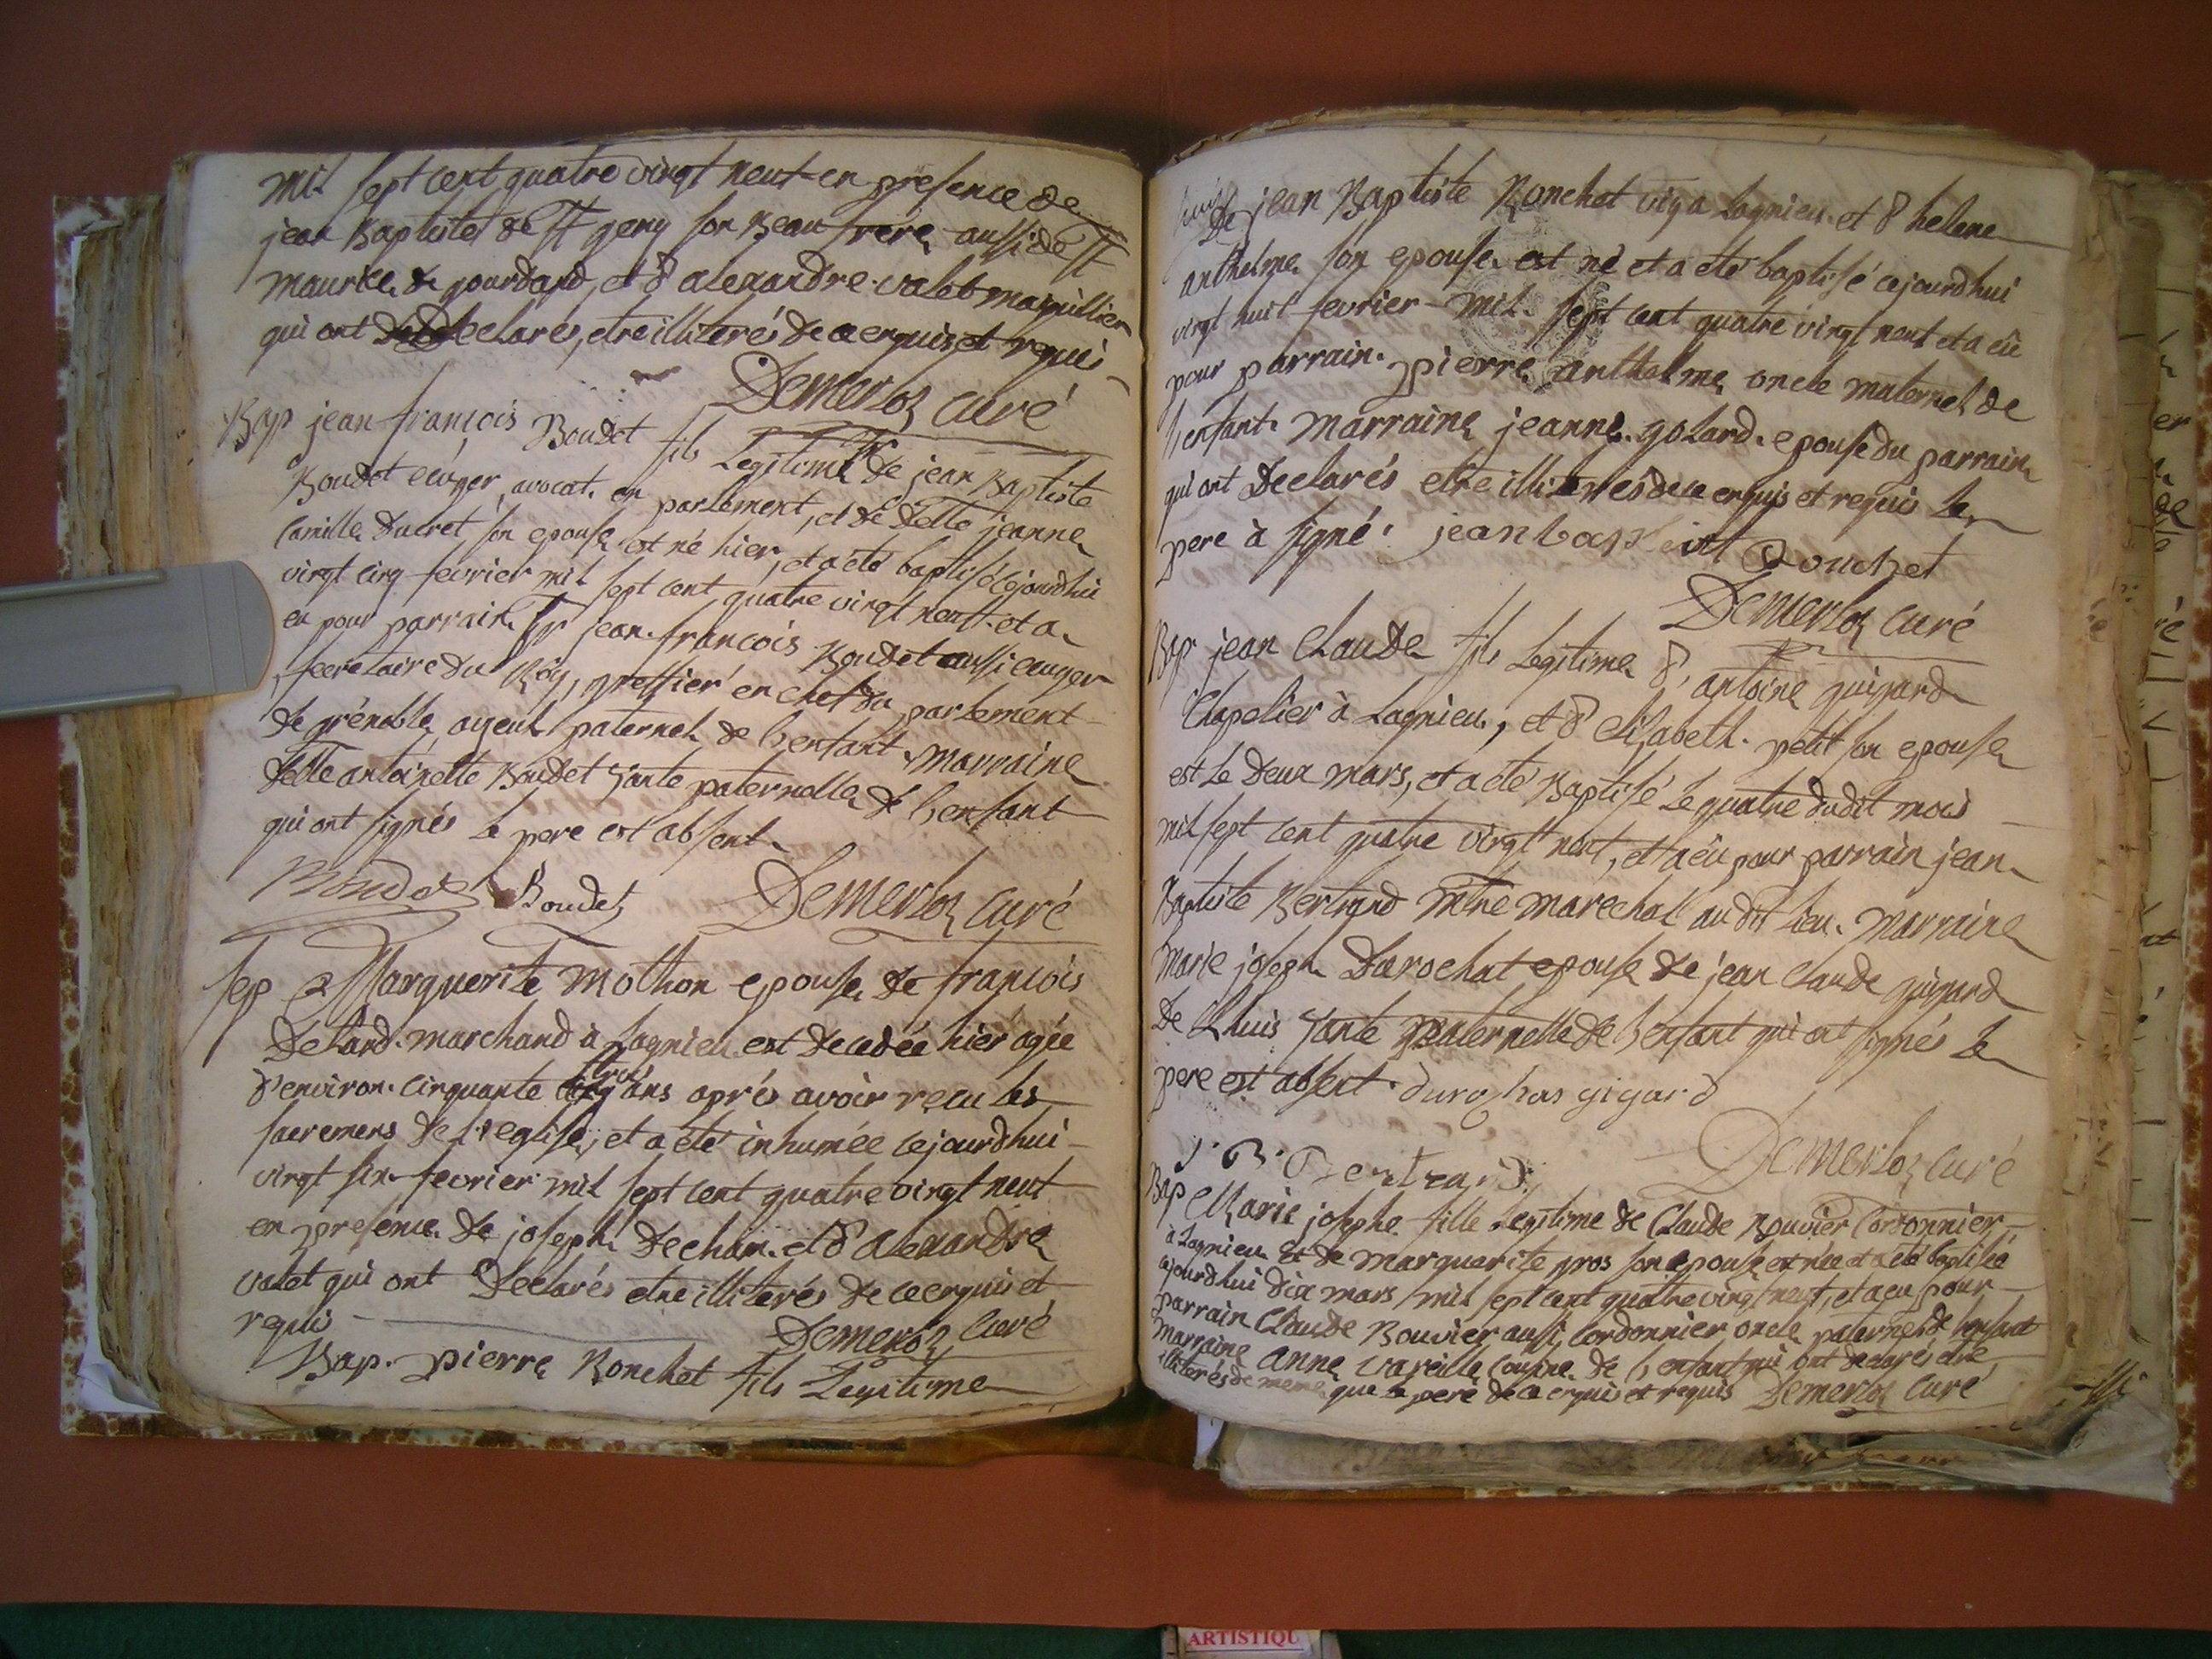 mil sept cent quatre vingt neuf en presence de
jean Baptiste de St geny son Beau frere aussi de St
maurice de gourdand, et d'alexandre valet marguillier
qui ont declarés, etre illiterés de ce enquis et requis
Demerloz curé
Bap jean françois Boudet fils Legitime de jean Baptiste
Boudet ecuyer, avocat en parlement, et de delle jeanne
Camille Ducret son epouse est né hier, et a été baptisé cejourdhui
vingt cinq fevrier mil sept cent quatre vingt neuf. et a
eu pour parrain Sr jean françois Boudet aussi ecuyer
secretaire du Roy, greffier en chef du parlement
de grénoble ayeul paternel de l'enfant. marraine
delle antoinette Boudet tante paternelle de l'enfant
qui ont signés le pere est absent.
Boudet Boudet Demerloz curé
Sep Marguerite mothon epouse de françois
Delard marchand à Lagnieu est decedée hier agée
d'environ cinquante trois ans aprés avoir reçu les
sacremens de l'eglise, et a été inhumée cejourdhui
vingt six fevrier mil sept cent quatre vingt neuf
en presence de joseph Dechan et d'alexandre
valet qui ont Declarés etre illiterés de ce enquis et
requis Demerloz curé
Bap. pierre Ronchet fils Legitime
de jean Baptiste Ronchet vig a Lagnieu et d'helene
anthelme son epouse est né et a été baptisé cejourdhui
vingt huit fevrier mil sept cent quatre vingt neuf et a eu
pour parrain pierre anthelme oncle maternel de
l'enfant marraine jeanne golard epouse du parrain
qui ont Declarés etre illiterés de ce enquis et requis Le
pere à signé. jean baptist Ronchet
Demerloz curé
Bap jean Claude fils Legitime d'antoine guigard
Chapelier à Lagnieu, et d'elisabeth petit son epouse
est le deux mars, et a été Baptisé le quatre dudit mois
mil sept cent quatre vingt neuf, et a eu pour parrain jean
Baptiste Bertrand mtre marechal audit lieu. marraine
Marie joseph Durochat epouse de jean Claude guigard
de Lhuis tante paternelle de l'enfant qui ont signés le
pere est absent. durochas gigard
J. B. Bertrand Demerloz curé
Bap Marie josephe fille Legitime de Claude Bouvier Cordonnier
à Lagnieu et de marguerite gros son epouse est née et a été baptisée
cejourdhui dix mars mil sept cent quatre vingt neuf, et a eu pour
parrain Claude Bouvier aussi cordonnier oncle paternel de l'enfant
marraine anne vareille cousine de l'enfant qui ont declarés etre
illiterés de meme que le pere de ce enquis et requis Demerloz curé
ARTISTIQU